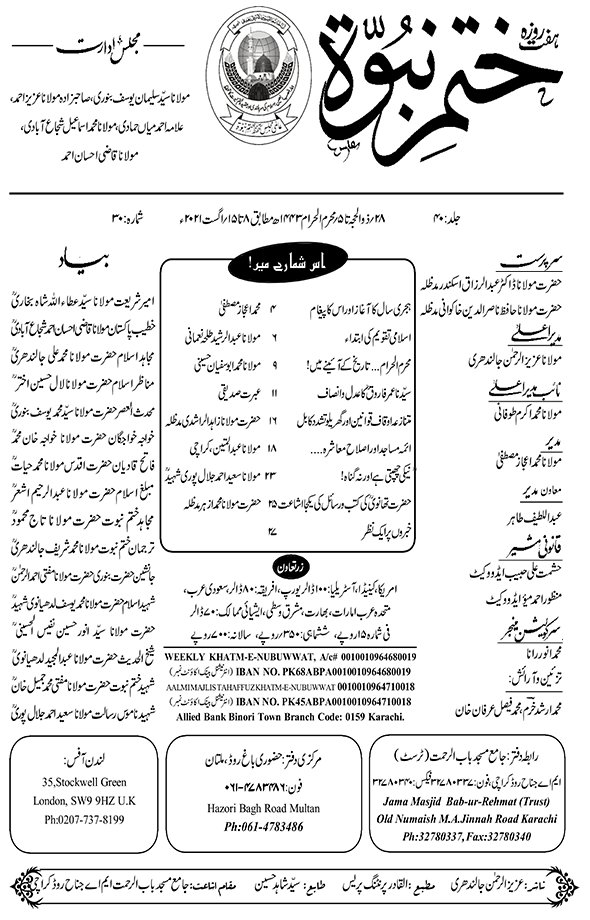 ہفت روزہ
ختم نبوۃ
مجلس ادارت
مولانا سید سلیمان یوسف بنوری، صاحبزادہ مولانا عزیز احمد،
علامہ احمد میاں حمادی، مولانا محمد اسماعیل شجاع آبادی،
مولانا قاضی احسان احمد
جلد: ۴۰
۲۸؍ذوالحجہ تا ۵؍محرم الحرام ۱۴۴۳ھ مطابق ۸ تا ۱۵؍اگست ۲۰۲۱ء
شمارہ: ۳۰
سرپرست
حضرت مولانا ڈاکٹر عبدالرزاق اسکندر مدظلہ
حضرت مولانا حافظ ناصر الدین خاکوانی مدظلہ
مدیر اعلےٰ
مولانا عزیز الرحمن جالندھری
نائب مدیر اعلےٰ
مولانا محمد اکرم طوفانی
مدیر
مولانا محمد اعجاز مصطفیٰ
معاون مدیر
عبداللطیف طاہر
قانونی مشیر
حشمت علی حبیب ایڈووکیٹ
منظور احمد میؤ ایڈووکیٹ
سرکولیشن منیجر
محمد انور رانا
تزئین و آرائش:
محمد ارشد خرم، محمد فیصل عرفان خان
اس شمارے میں!
ہجری سال کا آغاز اور اس کا پیغام ۴ محمد اعجاز مصطفیٰ
اسلامی تقویم کی ابتداء ۶ مولانا عبدالرشید طلحہ نعمانی
محرم الحرام... تاریخ کے آئینے میں! ۹ مولانا محمد ابوسفیان حسینی
سیدنا عمر فاروقؓ کا عدل و انصاف ۱۱ عبرت صدیقی
متنازعہ اوقاف قوانین اور گھریلو تشدد کا بل ۱۶ حضرت مولانا زاہد الراشدی مدظلہ
ائمہ مساجد اور اصلاح معاشرہ.... ۱۸ مولانا عبدالمتین، کراچی
نیکی چھپتی ہے اور نہ گناہ! ۲۳ مولانا سعید احمد جلال پوری شہیدؒ
حضرت تھانویؒ کی کتب و رسائل کی یکجا اشاعت ۲۵ حضرت مولانا محمد ازہر مدظلہ
خبروں پر ایک نظر ۲۷
زرتعاون
امریکا، کینیڈا، آسٹریلیا: ۱۰۰ ڈالر یورپ، افریقہ: ۸۰ ڈالر، سعودی عرب،
متحدہ عرب امارات، بھارت، مشرق وسطیٰ، ایشیائی ممالک: ۷۰ ڈالر
فی شمارہ ۱۵ روپے، ششماہی: ۳۵۰ روپے، سالانہ: ۷۰۰ روپے
WEEKLY KHATM-E-NUBUWWAT, A/c# 0010010964680019
IBAN NO. PK68ABPA0010010964680019 (انٹرنیشنل بینک اکاؤنٹ نمبر)
AALMIMAJLISTAHAFFUZKHATM-E-NUBUWWAT 0010010964710018
IBAN NO. PK45ABPA0010010964710018 (انٹرنیشنل بینک اکاؤنٹ نمبر)
Allied Bank Binori Town Branch Code: 0159 Karachi.
بیاد
امیر شریعت مولانا سید عطاء اللہ شاہ بخاریؒ
خطیب پاکستان مولانا قاضی احسان احمد شجاع آبادیؒ
مجاہد اسلام حضرت مولانا محمد علی جالندھریؒ
مناظر اسلام حضرت مولانا لال حسین اخترؒ
محدث العصر حضرت مولانا سید محمد یوسف بنوریؒ
خواجہ خواجگان حضرت مولانا خواجہ خان محمدؒ
فاتح قادیان حضرت اقدس مولانا محمد حیاتؒ
مبلغ اسلام حضرت مولانا عبدالرحیم اشعرؒ
مجاہد ختم نبوت حضرت مولانا تاج محمودؒ
ترجمان ختم نبوت مولانا محمد شریف جالندھریؒ
جانشین حضرت بنوری حضرت مولانا مفتی احمد الرحمنؒ
شہید اسلام حضرت مولانا محمد یوسف لدھیانوی شہیدؒ
حضرت مولانا سید انور حسین نفیس الحسینیؒ
شیخ الحدیث حضرت مولانا عبدالمجید لدھیانویؒ
شہید ختم نبوت حضرت مولانا مفتی محمد جمیل خانؒ
شہید ناموس رسالت مولانا سعید احمد جلال پوریؒ
رابطہ دفتر: جامع مسجد باب الرحمت (ٹرسٹ)
ایم اے جناح روڈ کراچی، فون: ۳۲۷۸۰۳۳۷، فیکس: ۳۲۷۸۰۳۴۰
Jama Masjid Bab-ur-Rehmat (Trust)
Old Numaish M.A.Jinnah Road Karachi
Ph:32780337, Fax:32780340
مرکزی دفتر: حضوری باغ روڈ، ملتان
فون: ۰۶۱-۴۷۸۳۴۸۶
Hazori Bagh Road Multan
Ph:061-4783486
لندن آفس:
35,Stockwell Green
London, SW9 9HZ U.K
Ph:0207-737-8199
ناشر: عزیز الرحمن جالندھری مطبع: القادر پرنٹنگ پریس طابع: سید شاہد حسین مقام اشاعت: جامع مسجد باب الرحمت ایم اے جناح روڈ کراچی